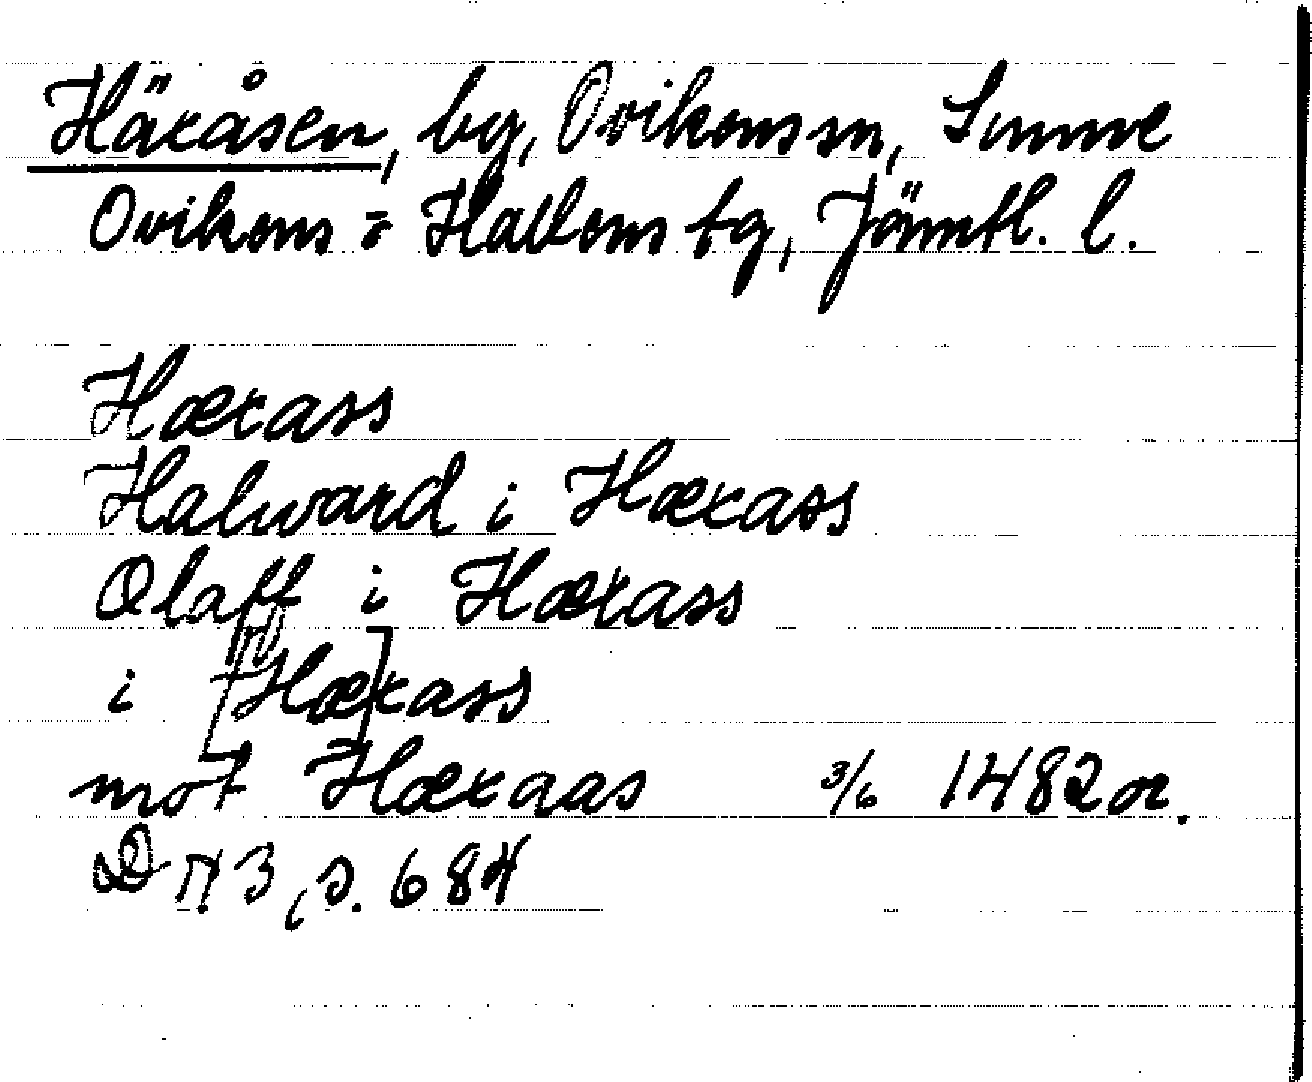 Häxåsen, by, Ovikens sn, Sunne
Ovikens o Hallens tg, Jämtl. l.
Hæxass
Halward i Hæxass
Olaff i Hæxass
i [Hæ]xass
mot Hæxaas 3/6 1482 or.
DN 3, s. 684